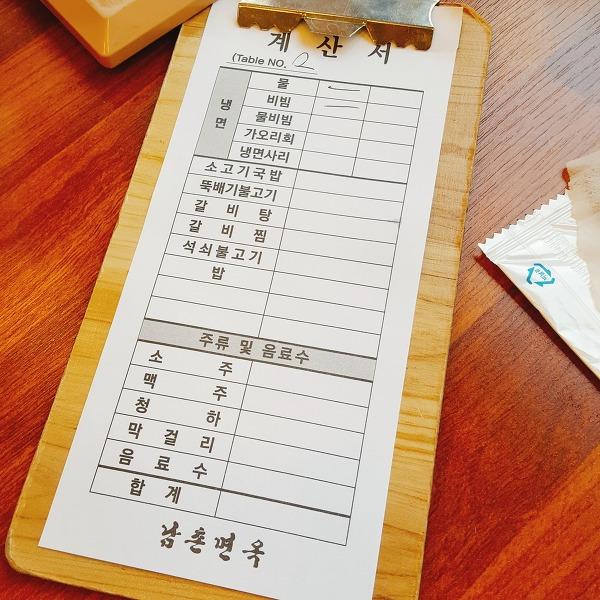 계 산 서
(Table NO. 2
냉면
물 一
비빔 二
물비빔
가오리회
냉면사리
소고기국밥
뚝배기불고기
갈 비 탕
갈 비 찜
석쇠불고기
밥
주류 및 음료수
소 주
맥 주
청 하
막 걸 리
음 료 수
합 계
남촌면옥